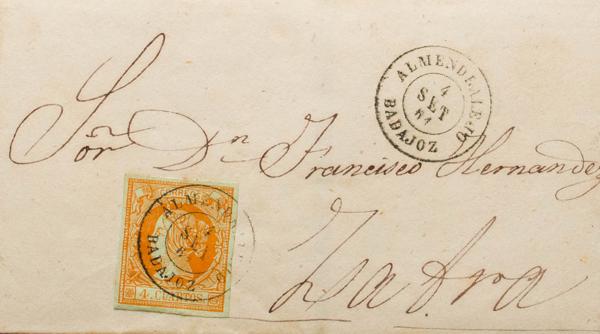 ALMENDRALEJO
4
SET
61
BADAJOZ
Sor Dn Francisco Hernandez
Zafra
ALMEN
SET
BADAJOZ
4 CUARTOS